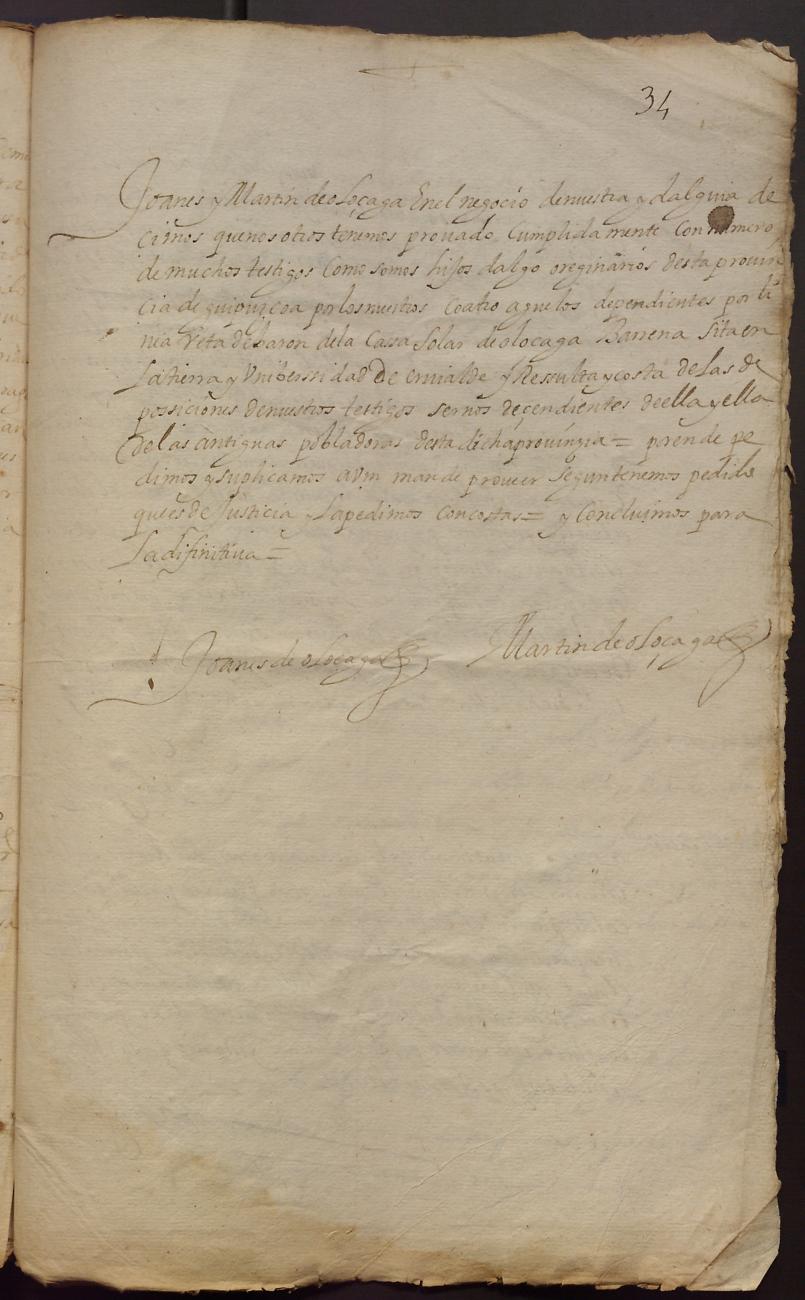 34
Joanes y Martin de oloçaga En el negocio de nuestra ydalguia de
cimos que nosotros tenemos provado cumplidamente con numero
de muchos testigos como somos hijos dalgo oreginarios desta provin
cia de guipuzcoa por los nuestros coatro aguelos dependientes por li
nia reta de baron de la Cassa Solar de olocaga Barrena sita en
la tierra y Uniberssidad De ernialde y Ressulta y costa de las de
possiciones de nuestros testigos sernos decendientes de ella y ella
de las antiguas pobladoras desta dicha provinzia = porende pe
dimos y suplicamos a Vm mande proveer segun tenemos pedido
que es de Justicia y la pedimos con costas = y Concluimos para
la difinitiva =
Joanes de oloçaga Martin de oloçaga